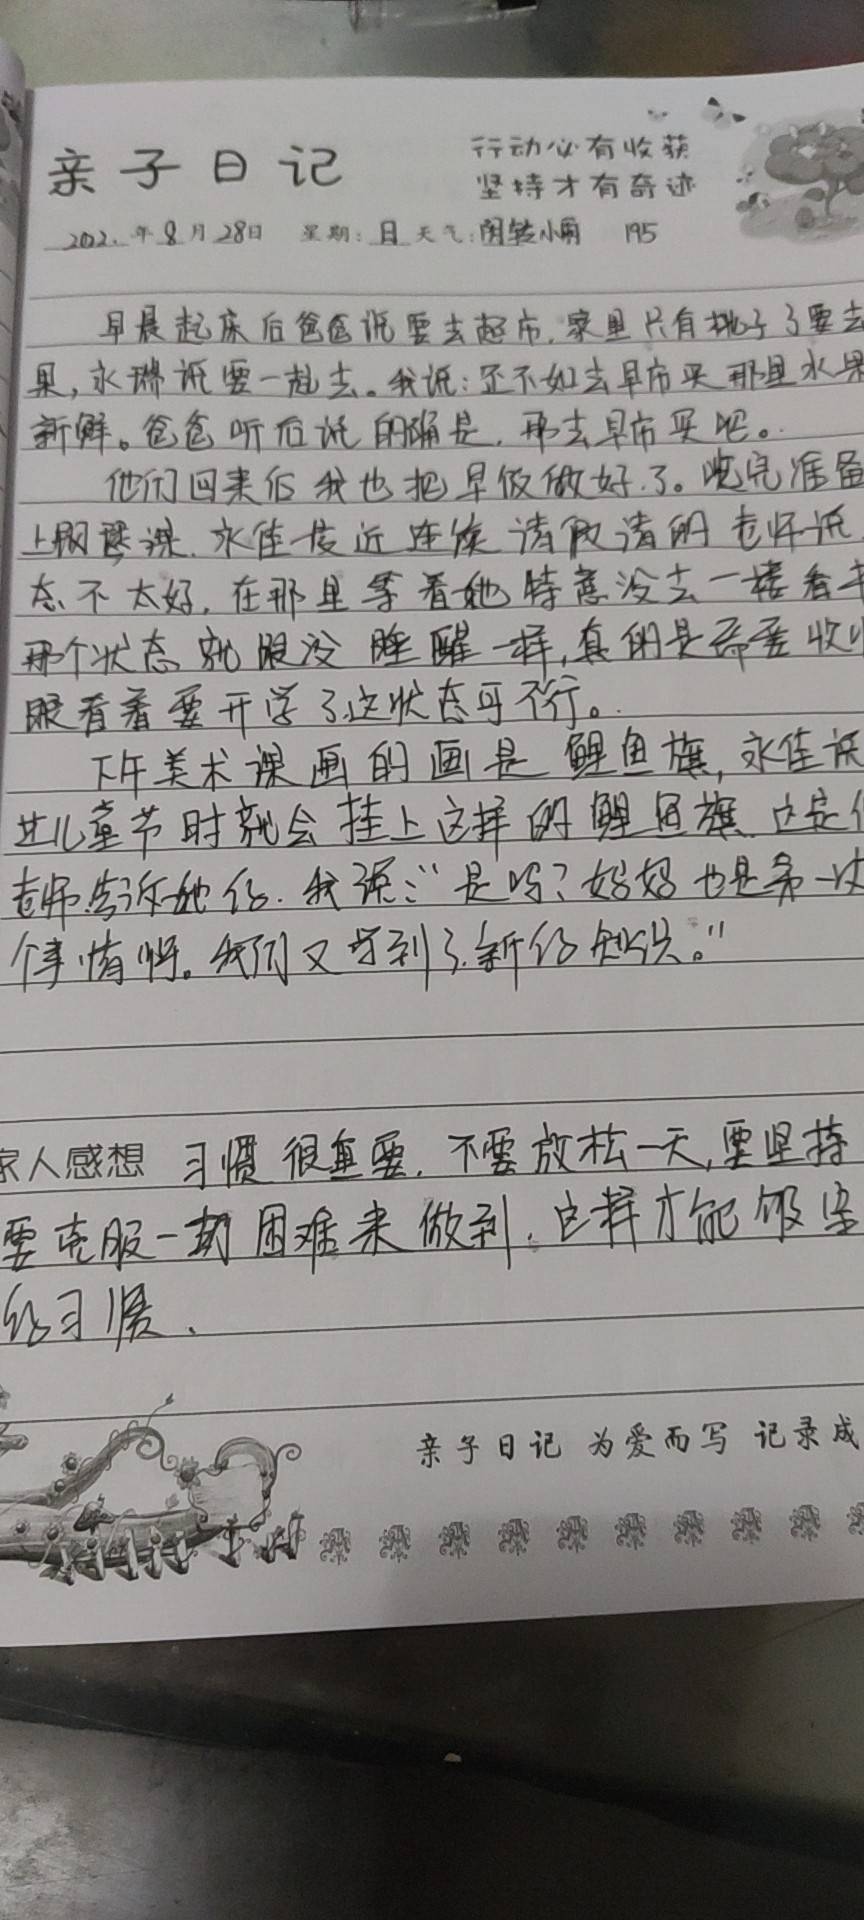 亲子日记
行动必有收获
坚持才有奇迹
202 年8月28日 星期:日 天气:阴转小雨 195
早晨起床后爸爸说要去超市,家里只有桃子了要去
果,永瑞说要一起去。我说:还不如去早市买那里水果
新鲜。爸爸听后说的确是,那去早市买吧。
他们回来后我也把早饭做好了。吃完准备
上钢琴课.永佳最近连续请假请的老师说
态不太好,在那里等着她特意没去一楼看书
那个状态就跟没睡醒一样,真的是需要收
眼看着要开学了这状态可不行。
下午美术课画的画是鲤鱼旗,永佳说
儿童节时就会挂上这样的鲤鱼旗.这是
老师告诉她的.我说:“是吗?妈妈也是第一次
个事情呀。我们又学到了新的知识。”
家人感想 习惯很重要.不要放松一天,要坚持
要克服一切困难来做到.这样才能够
的习惯.
亲子日记 为爱而写 记录成